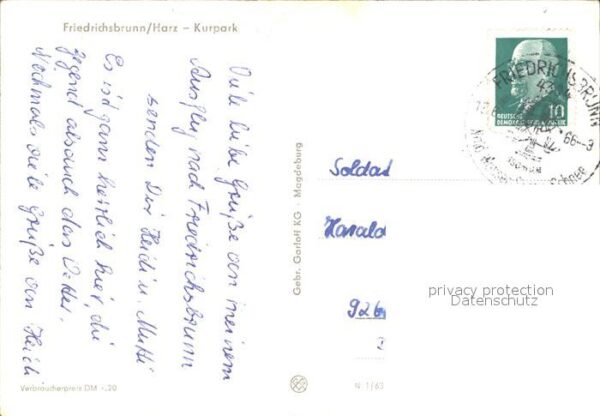 Friedrichsbrunn/Harz – Kurpark
Viele liebe Grüße von meinem
Ausflug nach Friedrichsbrunn
senden Dir Heidi u. Mutti
Es ist ganz herrlich hier die
Gegend als auch das Wetter.
Nochmals viele Grüße von Heidi
Gebr. Garloff KG · Magdeburg
DEUTSCHE
10
FRIEDRICHSBRUNN
43
66-3
Soldat
Harald
926
privacy protection
Datenschutz
Verbraucherpreis DM -,20
N 1/63